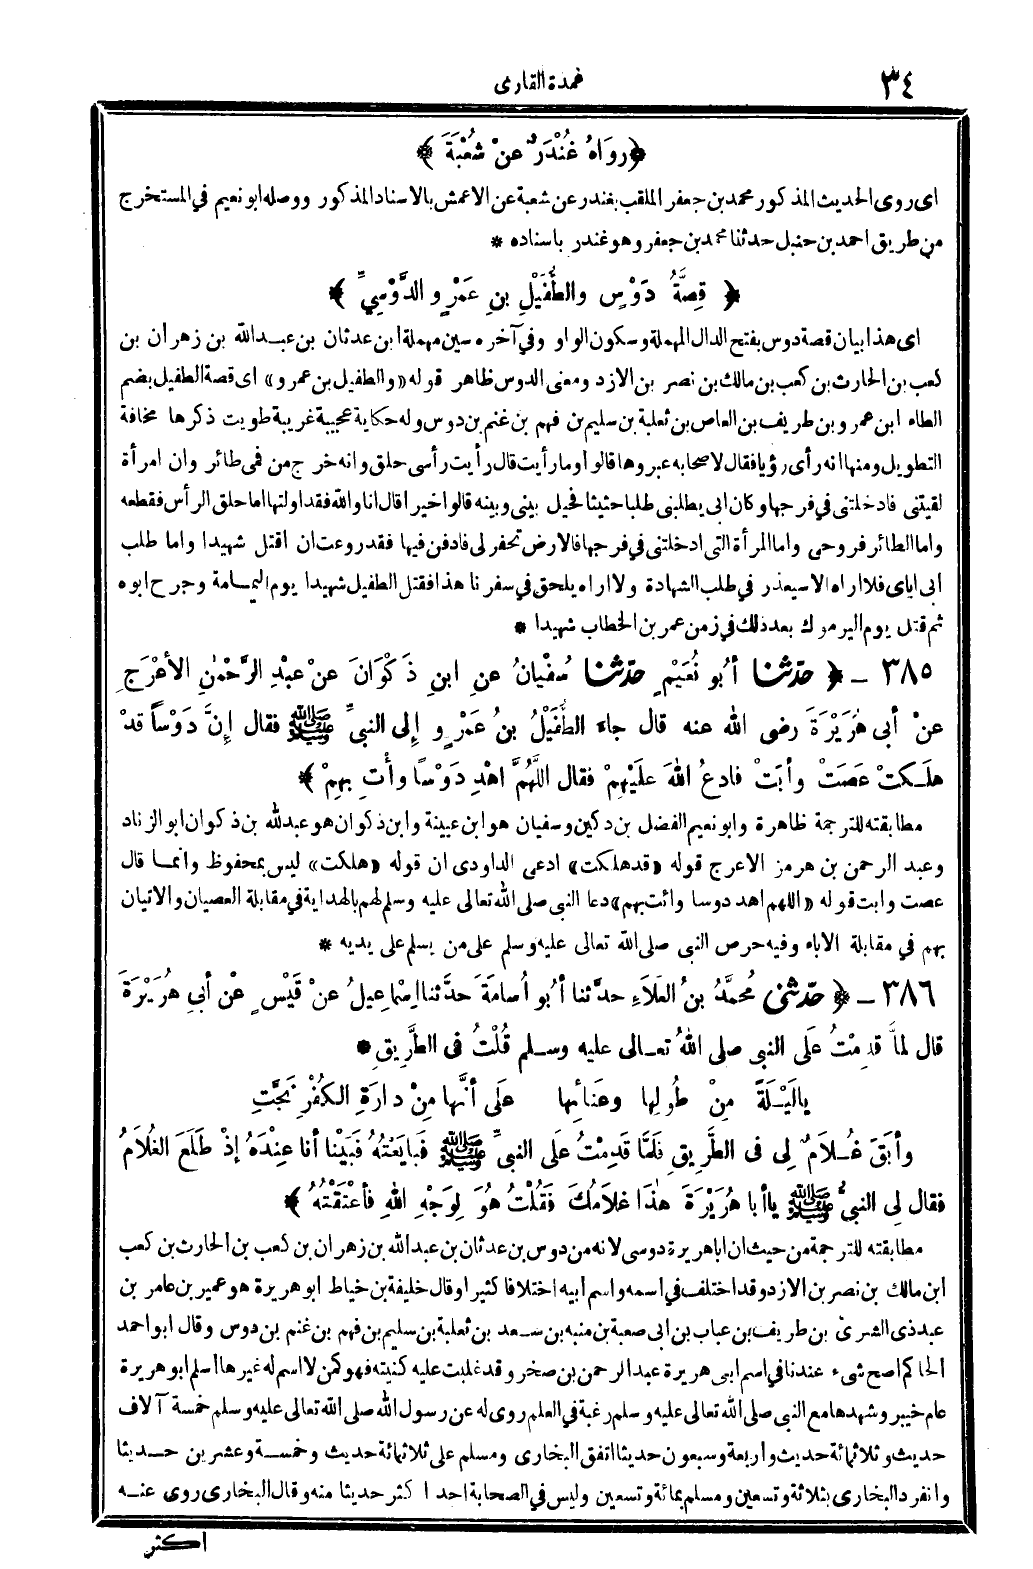 ٣٤
عمدة القارى
﴿ رواهُ غُنْدَرٌ عنْ شُعْبَةَ ﴾
اى روى الحديث المذكور محمد بن جعفر الملقب بغندر عن شعبة عن الاعمش بالاسناد المذكور ووصله ابو نعيم في المستخرج
من طريق احمد بن حنبل حدثنا محمد بن جعفر وهو غندر باسناده *
﴿ قِصَّةُ دَوْسٍ والطُّفَيْلِ بنِ عَمْرٍو الدَّوْسِيِّ ﴾
اى هذا بيان قصة دوس بفتح الدال المهملة وسكون الواو وفي آخره سين مهملة ابن عدثان بن عبد الله بن زهران بن
كعب بن الحارث بن كعب بن مالك بن نصر بن الازد ومعنى الدوس ظاهر قوله «والطفيل بن عمرو» اى قصة الطفيل بضم
الطاء ابن عمرو بن طريف بن العاص بن ثعلبة بن سليم بن فهم بن غنم بن دوس وله حكاية عجيبة غريبة طويت ذكرها مخافة
التطويل ومنها انه رأى رؤيا فقال لاصحابه عبروها قالوا وما رأيت قال رأيت رأسى حلق وانه خرج من فمى طائر وان امرأة
لقيتنى فادخلتنى في فرجها وكان ابى يطلبنى طلبا حثيثا فحيل بينى وبينه قالوا خيرا قال انا والله فقد اولتها اما حلق الرأس فقطعه
واما الطائر فروحى واما المرأة التى ادخلتنى في فرجها فالارض تحفر لى فادفن فيها فقد روعت ان اقتل شهيدا واما طلب
ابى اياى فلا اراه الا سيعذر في طلب الشهادة ولا اراه يلحق في سفرنا هذا فقتل الطفيل شهيدا يوم اليمامة وجرح ابوه
ثم قتل يوم اليرموك بعد ذلك في زمن عمر بن الخطاب شهيدا *
٣٨٥ - ﴿ حدّثنا أبُو نُعَيْمٍ حدّثنا سُفْيانُ عنِ ابنِ ذَكْوَانَ عنْ عبْدِ الرَّحْمٰنِ الأعْرَجِ
عنْ أبى هُرَيْرَةَ رضى الله عنه قال جاء الطُّفَيْلُ بنُ عَمْرٍو إلى النبيِّ ﷺ فقال إنَّ دَوْساً قدْ
هلَكتْ عَصَتْ وأبَتْ فادعُ اللهَ علَيْهِمْ فقال اللَّهُمَّ اهْدِ دَوْسًا وأْتِ بِهِمْ ﴾
مطابقته للترجمة ظاهرة وابو نعيم الفضل بن دكين وسفيان هو ابن عيينة وابن ذكوان هو عبدلله بن ذكوان ابو الزناد
وعبد الرحمن بن هرمز الاعرج قوله «قد هلكت» ادعى الداودى ان قوله «هلكت» ليس بمحفوظ وانما قال
عصت وابت قوله «اللهم اهد دوسا وائت بهم» دعا النبى صلى الله تعالى عليه وسلم لهم بالهداية في مقابلة العصيان والاتيان
بهم في مقابلة الاباء وفيه حرص النبى صلى الله تعالى عليه وسلم على من يسلم على يديه *
٣٨٦ - ﴿ حدّثنى مُحمَّدُ بنُ العَلَاءِ حدَّثنا أبُو أُسامَةَ حدَّثنا إسْماعِيلُ عنْ قَيْسٍ عنْ أبي هُرَيْرَةَ
قال لمَّا قدِمْتُ علَى النبى صلى اللهُ تعالى عليه وسلم قُلْتُ فى الطَّرِيقِ *
يا لَيْلَةً مِنْ طُولِها وعَنائِها علَى أنَّها مِنْ دارَةِ الكُفْرِ نَجَّتِ
وأبَقَ غُلامٌ لِى فى الطَّرِيقِ فلَمَّا قَدِمْتُ علَى النبيِّ ﷺ فَبايَعْتُهُ فَبَيْنا أنا عِنْدَهُ إذْ طَلَعَ الغُلَامُ
فقال لِى النبيُّ ﷺ يا أبا هُرَيْرَةَ هٰذا غلَامُكَ فَقُلْتُ هُوَ لِوَجْهِ اللهِ فأعْتَقْتُهُ ﴾
مطابقته للترجمة من حيث ان اباهريرة دوسى لانه من دوس بن عدثان بن عبد الله بن زهران بن كعب بن الحارث بن كعب
ابن مالك بن نصر بن الازد وقد اختلف في اسمه واسم ابيه اختلافا كثيرا وقال خليفة بن خياط ابو هريرة هو عمير بن عامر بن
عبد ذى الشرى بن طريف بن عباب بن ابى صعبة بن منبه بن سعد بن ثعلبة بن سليم بن فهم بن غنم بن دوس وقال ابو احمد
الحاكم اصح شىء عندنا في اسم ابى هريرة عبد الرحمن بن صخر وقد غلبت عليه كنيته فهو كمن لا اسم له غيرها اسلم ابو هريرة
عام خيبر وشهدها مع النبى صلى الله تعالى عليه وسلم رغبة في العلم روى له عن رسول الله صلى الله تعالى عليه وسلم خمسة آلاف
حديث وثلاثمائة حديث واربعة وسبعون حديثا اتفق البخارى ومسلم على ثلاثمائة حديث وخمسة وعشرين حديثا
وانفرد البخارى بثلاثة وتسعين ومسلم بمائة وتسعين وليس في الصحابة احد اكثر حديثا منه وقال البخارى روى عنه
اكثر